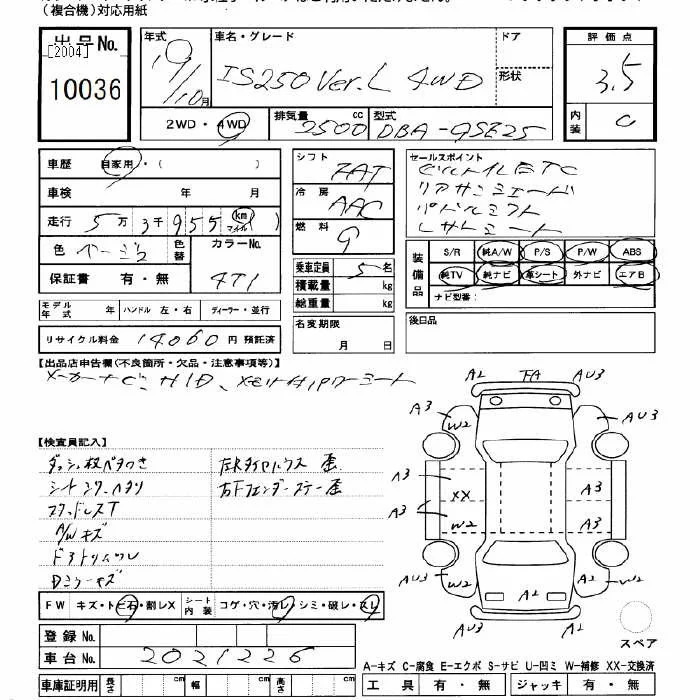 （複合機）対応用紙
出品No.
[2004]
10036
年式
19/10月
車名・グレード
IS250 Ver.L 4WD
ドア
形状
評価点
3.5
内装
C
2WD・4WD
排気量
2500 cc
型式
DBA-GSE25
車歴 自家用・（ ）
車検 年 月
走行 5万3千955 km マイル（ ）
色 ベージュ
色替
カラーNo.
4T1
保証書 有・無
シフト
7AT
冷房
AAC
燃料
G
乗車定員 5名
積載量 kg
総重量 kg
名変期限
月 日
セールスポイント
ビルトイルETC
リアサンシェード
パドルシフト
レザーシート
装備品
S/R 純A/W P/S P/W ABS
純TV 純ナビ 革シート 外ナビ エアB
ナビ型番：
後日品
モデル年式 年 ハンドル 左・右 ディーラー・並行
リサイクル料金 14060円 預託済
【出品店申告欄（不良箇所・欠品・注意事項等）】
メーカーナビ、HID、メモリ付パワーシート
【検査員記入】
ダッシュ板ベタつき
シート シワ・ヘタリ
スタッドレスT
A/Wキズ
Dミラーキズ
左Rタイヤハウス 歪
右Fフェンダーステー歪
A2 FA AU3
A3 W2 AU3
A3 XX A3
A3 W2 A3
AU3 W2 A2 W2
AU3 A2
FW キズ・トビ石・割レX シート内装 コゲ・穴・汚レ・シミ・破レ・スレ
登録No.
車台No. 2021226
車庫証明用 長さ cm 幅 cm 高さ cm
スペア
A-キズ C-腐食 E-エクボ S-サビ U-凹ミ W-補修 XX-交換済
工具 有・無 ジャッキ 有・無